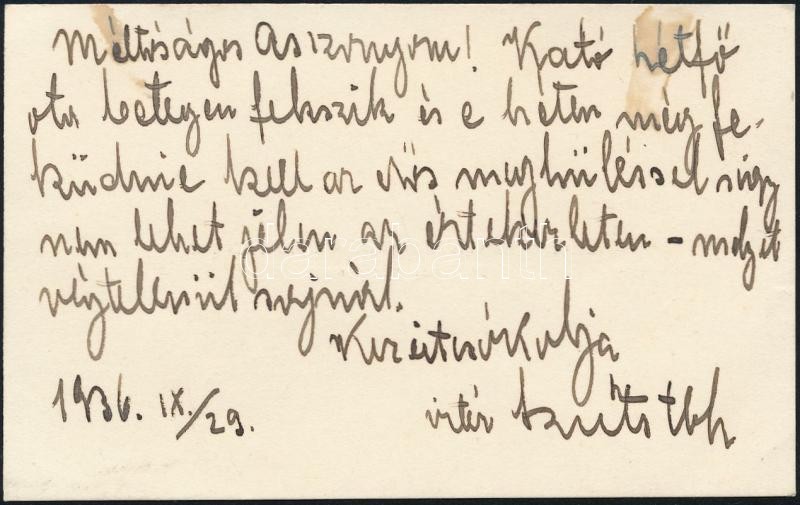 Méltóságos Asszonyom! Kató hétfő
óta betegen fekszik és e héten még fe-
küdnie kell az erős meghűléssel s így
nem lehet jelen az értekezleten – melyet
végtelenül sajnál.
Kezeit csókolja
1936. IX./29.
vitéz
darabanth